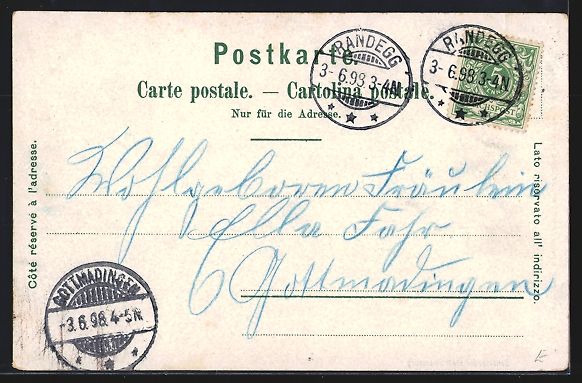 Postkarte.
Carte postale. — Cartolina postale.
Nur für die Adresse.
RANDEGG
3-6.98 3-4N
RANDEGG
3-6.98 3-4N
Côté réservé à l'adresse.
Lato riservato all' indirizzo.
Wohlgeboren Fräulein
Ella Fahr
Gottmadingen
GOTTMADINGEN
-3.6.98.4-5N.